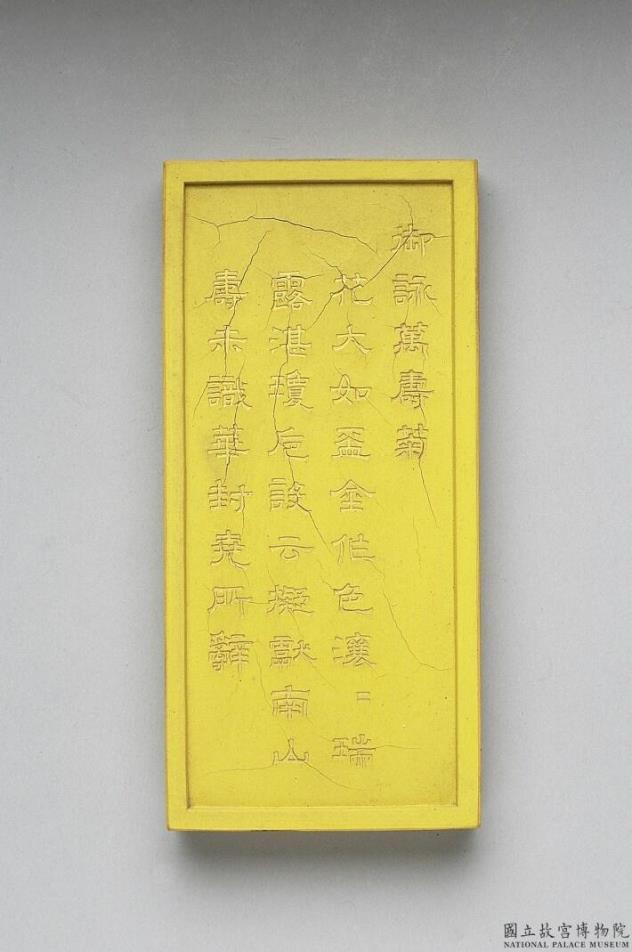 御詠萬壽菊
花大如盃金作色瀼〻瑞
露湛瓊卮設云擬獻南山
壽未識華封堯所辭
國立故宮博物院
NATIONAL PALACE MUSEUM